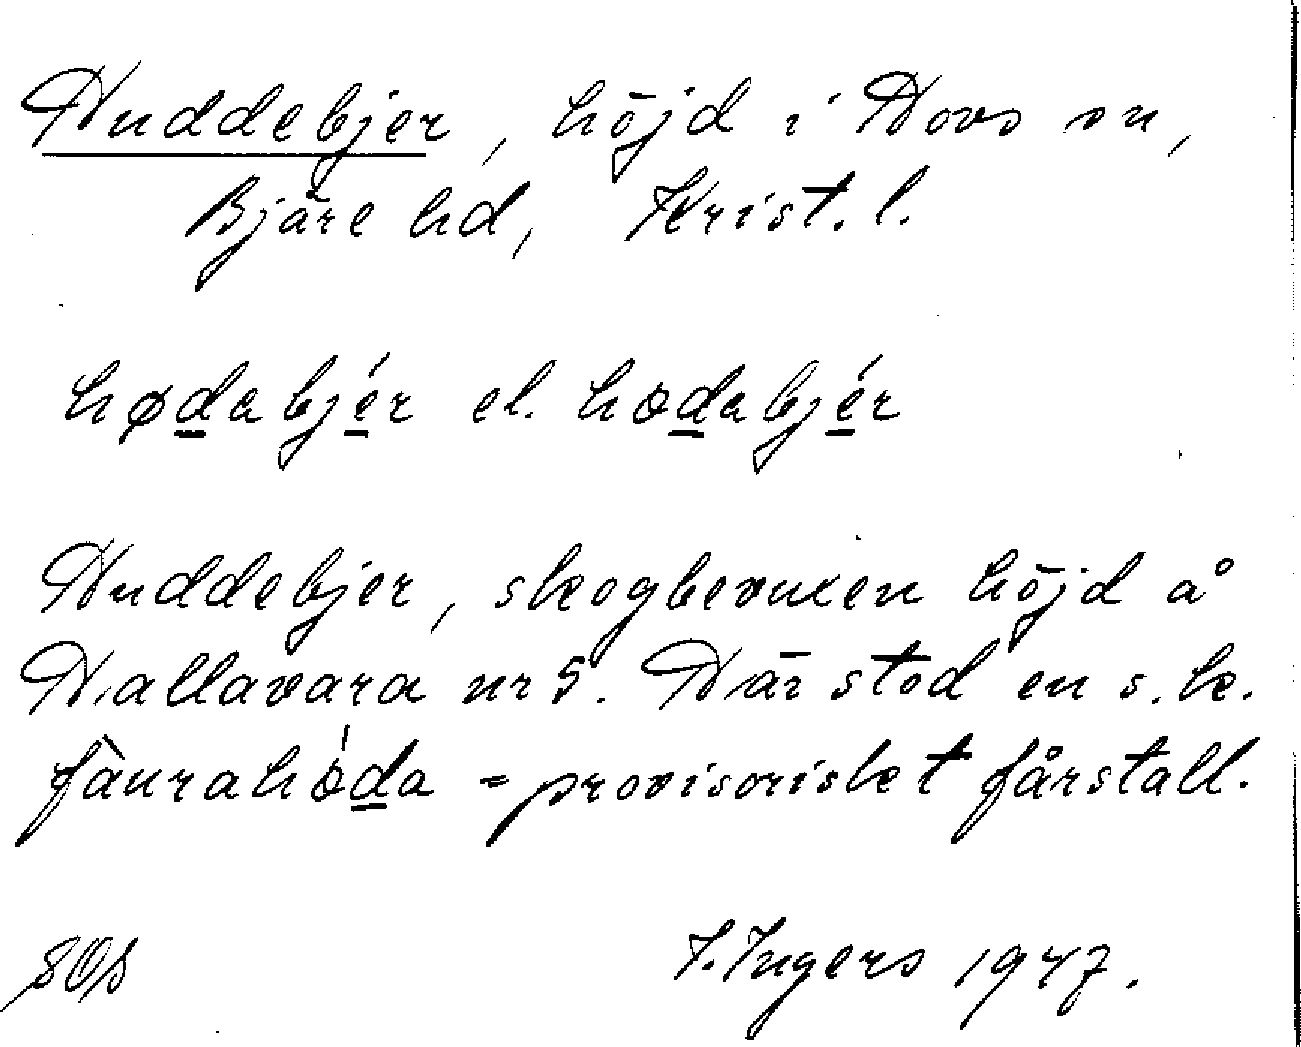 Huddebjer, höjd i Hovs sn,
Bjäre hd, Krist. l.
hødabjér el. hodabjér
Huddebjer, skogbevuxen höjd å
Hallavara nr 5. Här stod en s.k.
fàurahóda = provisoriskt fårstall.
I. Ingers 1947.